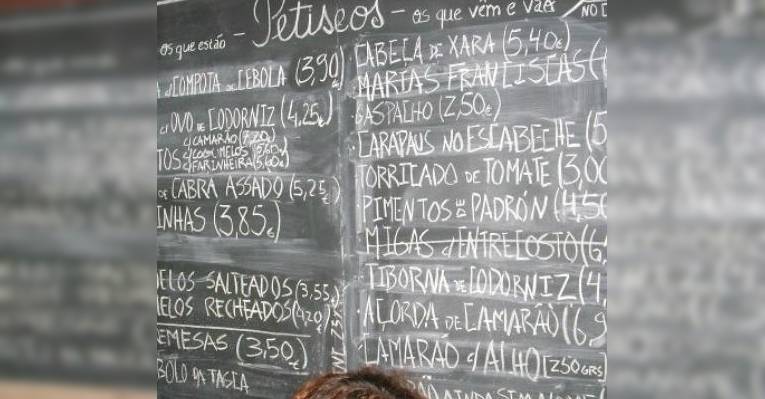 os que estão - Petiscos - os que vêm e vão
NO
C/COMPOTA DE CEBOLA (3,90)
C/ OVO DE CODORNIZ (4,25€)
C/CAMARÃO (7,20)
TOS C/COGUMELOS (5,60€)
C/FARINHEIRA (5,60€)
DE CABRA ASSADO (5,25€)
INHAS (3,85€)
MELOS SALTEADOS (3,55€)
MELOS RECHEADOS (4,20€)
EMESAS (3,50€)
BOLO DA TASCA
CABEÇA DE XARA (5,40€)
MARIAS FRANCISCAS (
GASPACHO (2,50€)
CARAPAUS NO ESCABECHE (5
TORRICADO DE TOMATE (3,00
PIMENTOS DE PADRÓN (4,50
MIGAS C/ENTRECOSTO (6,
TIBORNA DE CODORNIZ (4,
AÇORDA DE CAMARÃO (6,9
CAMARÃO C/ALHO (250GRS)